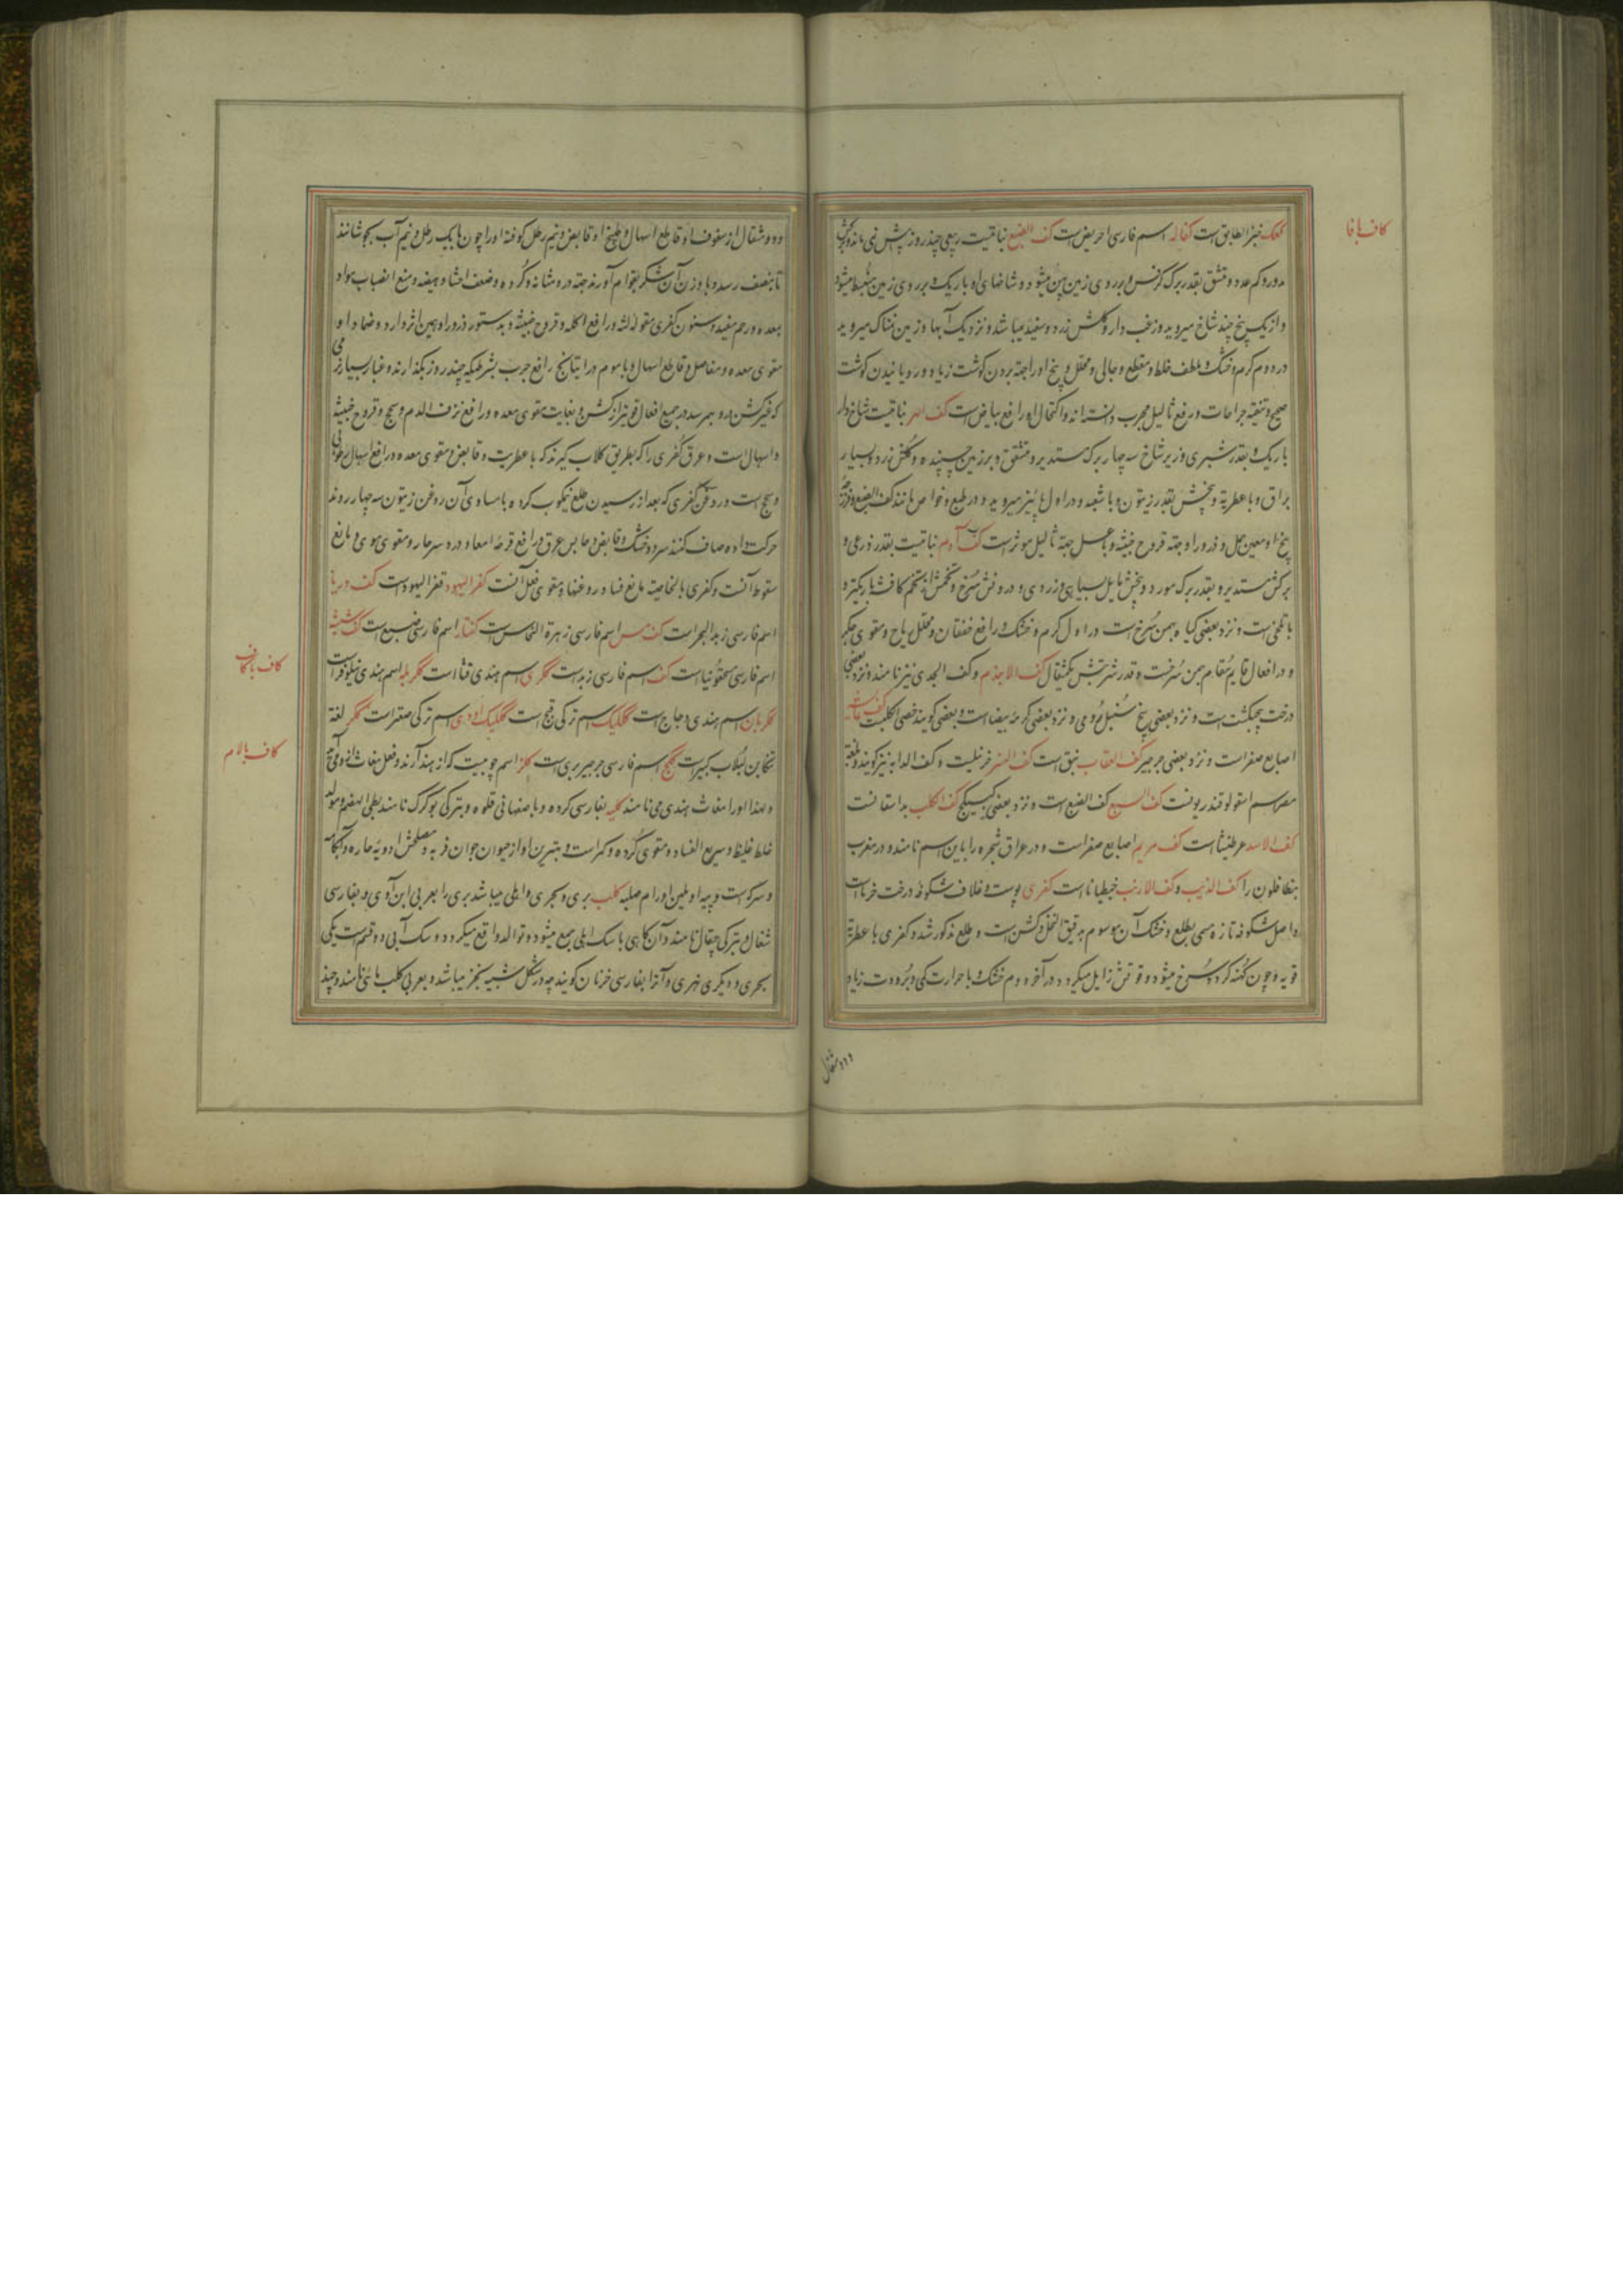 کاف با فا
کعک خبز الطابق است کفاله اسم فارسی احریض است کف الضبع نباتیست ربیعی چند روز پیش نمی ماند و برگش
مدور و کم عدد و مشقق بقدر برک کرفس و بر روی زمین پهن میشود و شاخهای او باریک و بر روی زمین منبسط میشود
و از یک بیخ چند شاخ میروید و زغب دار و کلش زرد و سفید میباشد و نزدیک آبها و زمین نمناک میروید
در دوم کرم و خشک و ملطف غلط و مقطع و جالی و محلل و بیخ او را جهته بردن کوشت زیاد و رویانیدن کوشت
صحیح و تنقیه جراحات و رفع ثالیل مجرب دانسته اند و اکتحال او رافع بیاض است کف الهر نباتیست شاخ دار
باریک و بقدر شبری و زیر شاخ سه چهار برک مستدیر و مشقق و بر زمین چسپنده و کلش زرد و بسیار
براق و با عطریة و بیخش بقدر زیتون و با شعبه و در اول پائیز میروید و در طبع و خواص مانند کف الضبع و فرزجه
بیخ او معین حمل و ذرور او جهته قروح خبیثه و با عسل جهته ثالیل موثر است کف آدم نباتیست بقدر ذرعی و
برکش مستدیر و بقدر برک مورد و بیخش مایل بسیاهی و زردی و درونش سرخ و تخمش مانند تخم کافشه باریکتر و
با تلخی است و نزد بعضی کیاه بهمن سرخ است در اول کرم و خشک و رافع خفقان و محلل ریاح و مقوی جکر
و در افعال قایم مقام بهمن سرخست و قدر شربتش یکمثقال کف الاجذم و کف الجدی نیز نامند و نزد بعضی
درخت پنجنکشت است و نزد بعضی بیخ سنبل رومی و نزد بعضی کرمهٔ بیضا است و بعضی کویند خصی الکلبست کف عایشه
اصابع صفر است و نزد بعضی جرجیر کف العقاب نبق است کف النسر خرنبلیت و کف الدابه نیز کویند و بلغة
مصر اسم اسقولوقندریونست کف السبع کف الضبع است و نزد بعضی کبیکج کف الکلب بداسقانست
کف الاسد عرطنیثا است کف مریم اصابع صفر است و در عراق شجره را باین اسم نامند و در مغرب
بنطافلون را کف الذئب و کف الارنب جنطیانا است کفری پوست و غلاف شکوفهٔ درخت خرماست
و اصل شکوفه تازه مسمی بطلع و خشک آن موسوم بدقیق النخل و کشن است و طلع مذکور شد و کفری با عطریة
قویه و چون کهنه کردد سرخ میشود و قوتش زایل میکردد در آخر دوم خشک و با حرارت کمی و برودت زیاد
و دو مثقال
و دو مثقال از سفوف او قاطع اسهال و طبیخ او قابض و نیم رطل کوفته او را چون با یک رطل و نیم آب بجوشانند
تا بنصف رسد و با وزن آن شکر بقوام آورند جهته درد مثانه و کرده و ضعف احشا و هیضه و منع انصباب مواد
بمعده و رحم مفید و سنون کفری مقوی لثه و رافع اکله و قروح خبیثه و بدستور ذرور او همین اثر دارد و ضماد او
مقوی معده و مفاصل و قاطع اسهال و با موم و راتیانج رافع جرب بشرطیکه چند روز بکذارند و غبار بسیار نرمی
که غیر کشن از او بهم رسد در جمیع افعال قویتر از کشن و بغایت مقوی معده و رافع نزف الدم و سحج و قروح خبیثه
و اسهال است و عرق کفری را که بطریق کلاب کیرند که با عطریت و قابض و مقوی معده و رافع اسهال رطوبی
و سحج است و روغن کفری که بعد از رسیدن طلع نیکوب کرده با مساوی آن روغن زیتون سه چهار روز
حرکت داده صاف کنند سرد و خشک و قابض و حابس عرق و رافع قرحهٔ امعا و درد سر حار و مقوی موی و مانع
سقوط آنست و کفری بالخاصیة مانع فساد روغنها و مقوی فعل آنست کفر الیهود قفر الیهود است کف دریا
اسم فارسی زبد البحر است کف مس اسم فارسی زهرة النحاس است کفتار اسم فارسی ضبع است کف شیشه
اسم فارسی مسحقونیا است کف اسم فارسی زبد است ککری اسم هندی قثا است ککر بله اسم هندی نیلوفر است
ککربان اسم هندی دجاج است ککلیک اسم ترکی قبج است ککلیک اودی اسم ترکی صعتر است ککر لغة
تنکابن لبلاب کبیر است کلج اسم فارسی جرجیر بری است کلز اسم چوبیست که از هند آرند و فعل مغاث از او می آید
و لهذا او را مغاث هندی می نامند کلیه بفارسی کرده و باصفهانی قلوه و بترکی بوکرک نامند بطی الهضم و مولد
خلط غلیظ و سریع الفساد و مقوی کرده و کمر است و بهترین او از حیوان جوان فربه و مصلحش ادویه حاره و آبکامه
و سرکه است و پیه او ملین اورام صلبه کلب بری و بحری و اهلی میباشد بری را بعربی ابن آوی و بفارسی
شغال و بترکی چقال نامند و آن کاهی با سک اهلی جمع میشود و توالد واقع میکردد و سک آبی دو قسم است یکی
بحری و دیکری نهری و آنرا بفارسی خزنان کویند چه در شکل شبیه بخز میباشد و بعربی کلب مائی نامند و جند
کاف با کاف
کاف با لام